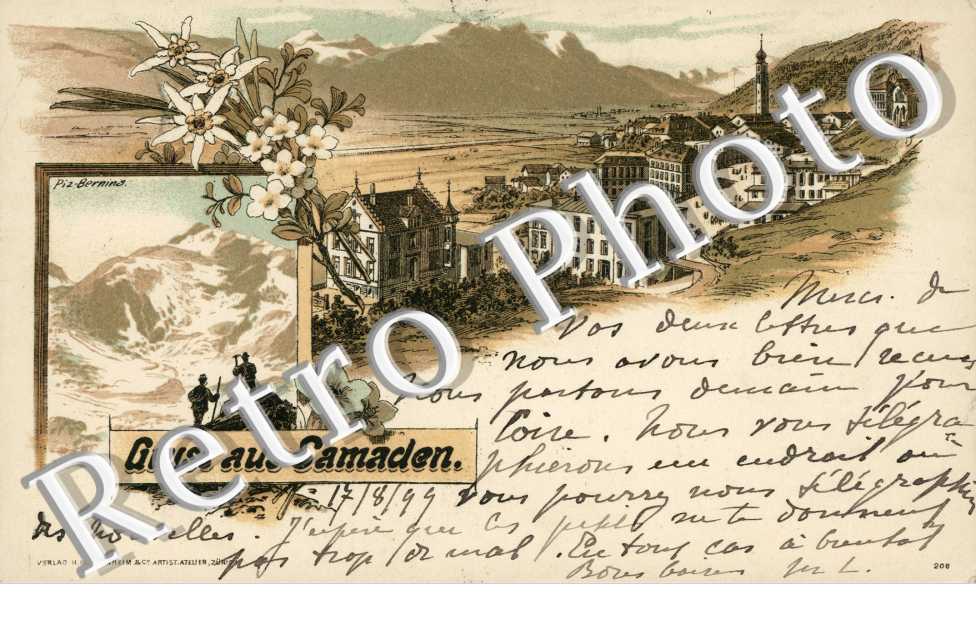 Piz-Bernina.
Retro Photo
Gruss aus Samaden.
Merci de
vos deux lettres que
nous avons bien recues
Nous partons demain pour
Nous vous télégra-
phierons un endroit où
17/8/99 vous pourrez nous télégraphier
des nouvelles. J'espère que ces petits ne te donnent
pas trop de mal. En tous cas à bientot
Bons baisers M L.
VERLAG H. & CO ARTIST. ATELIER, ZÜRICH
208